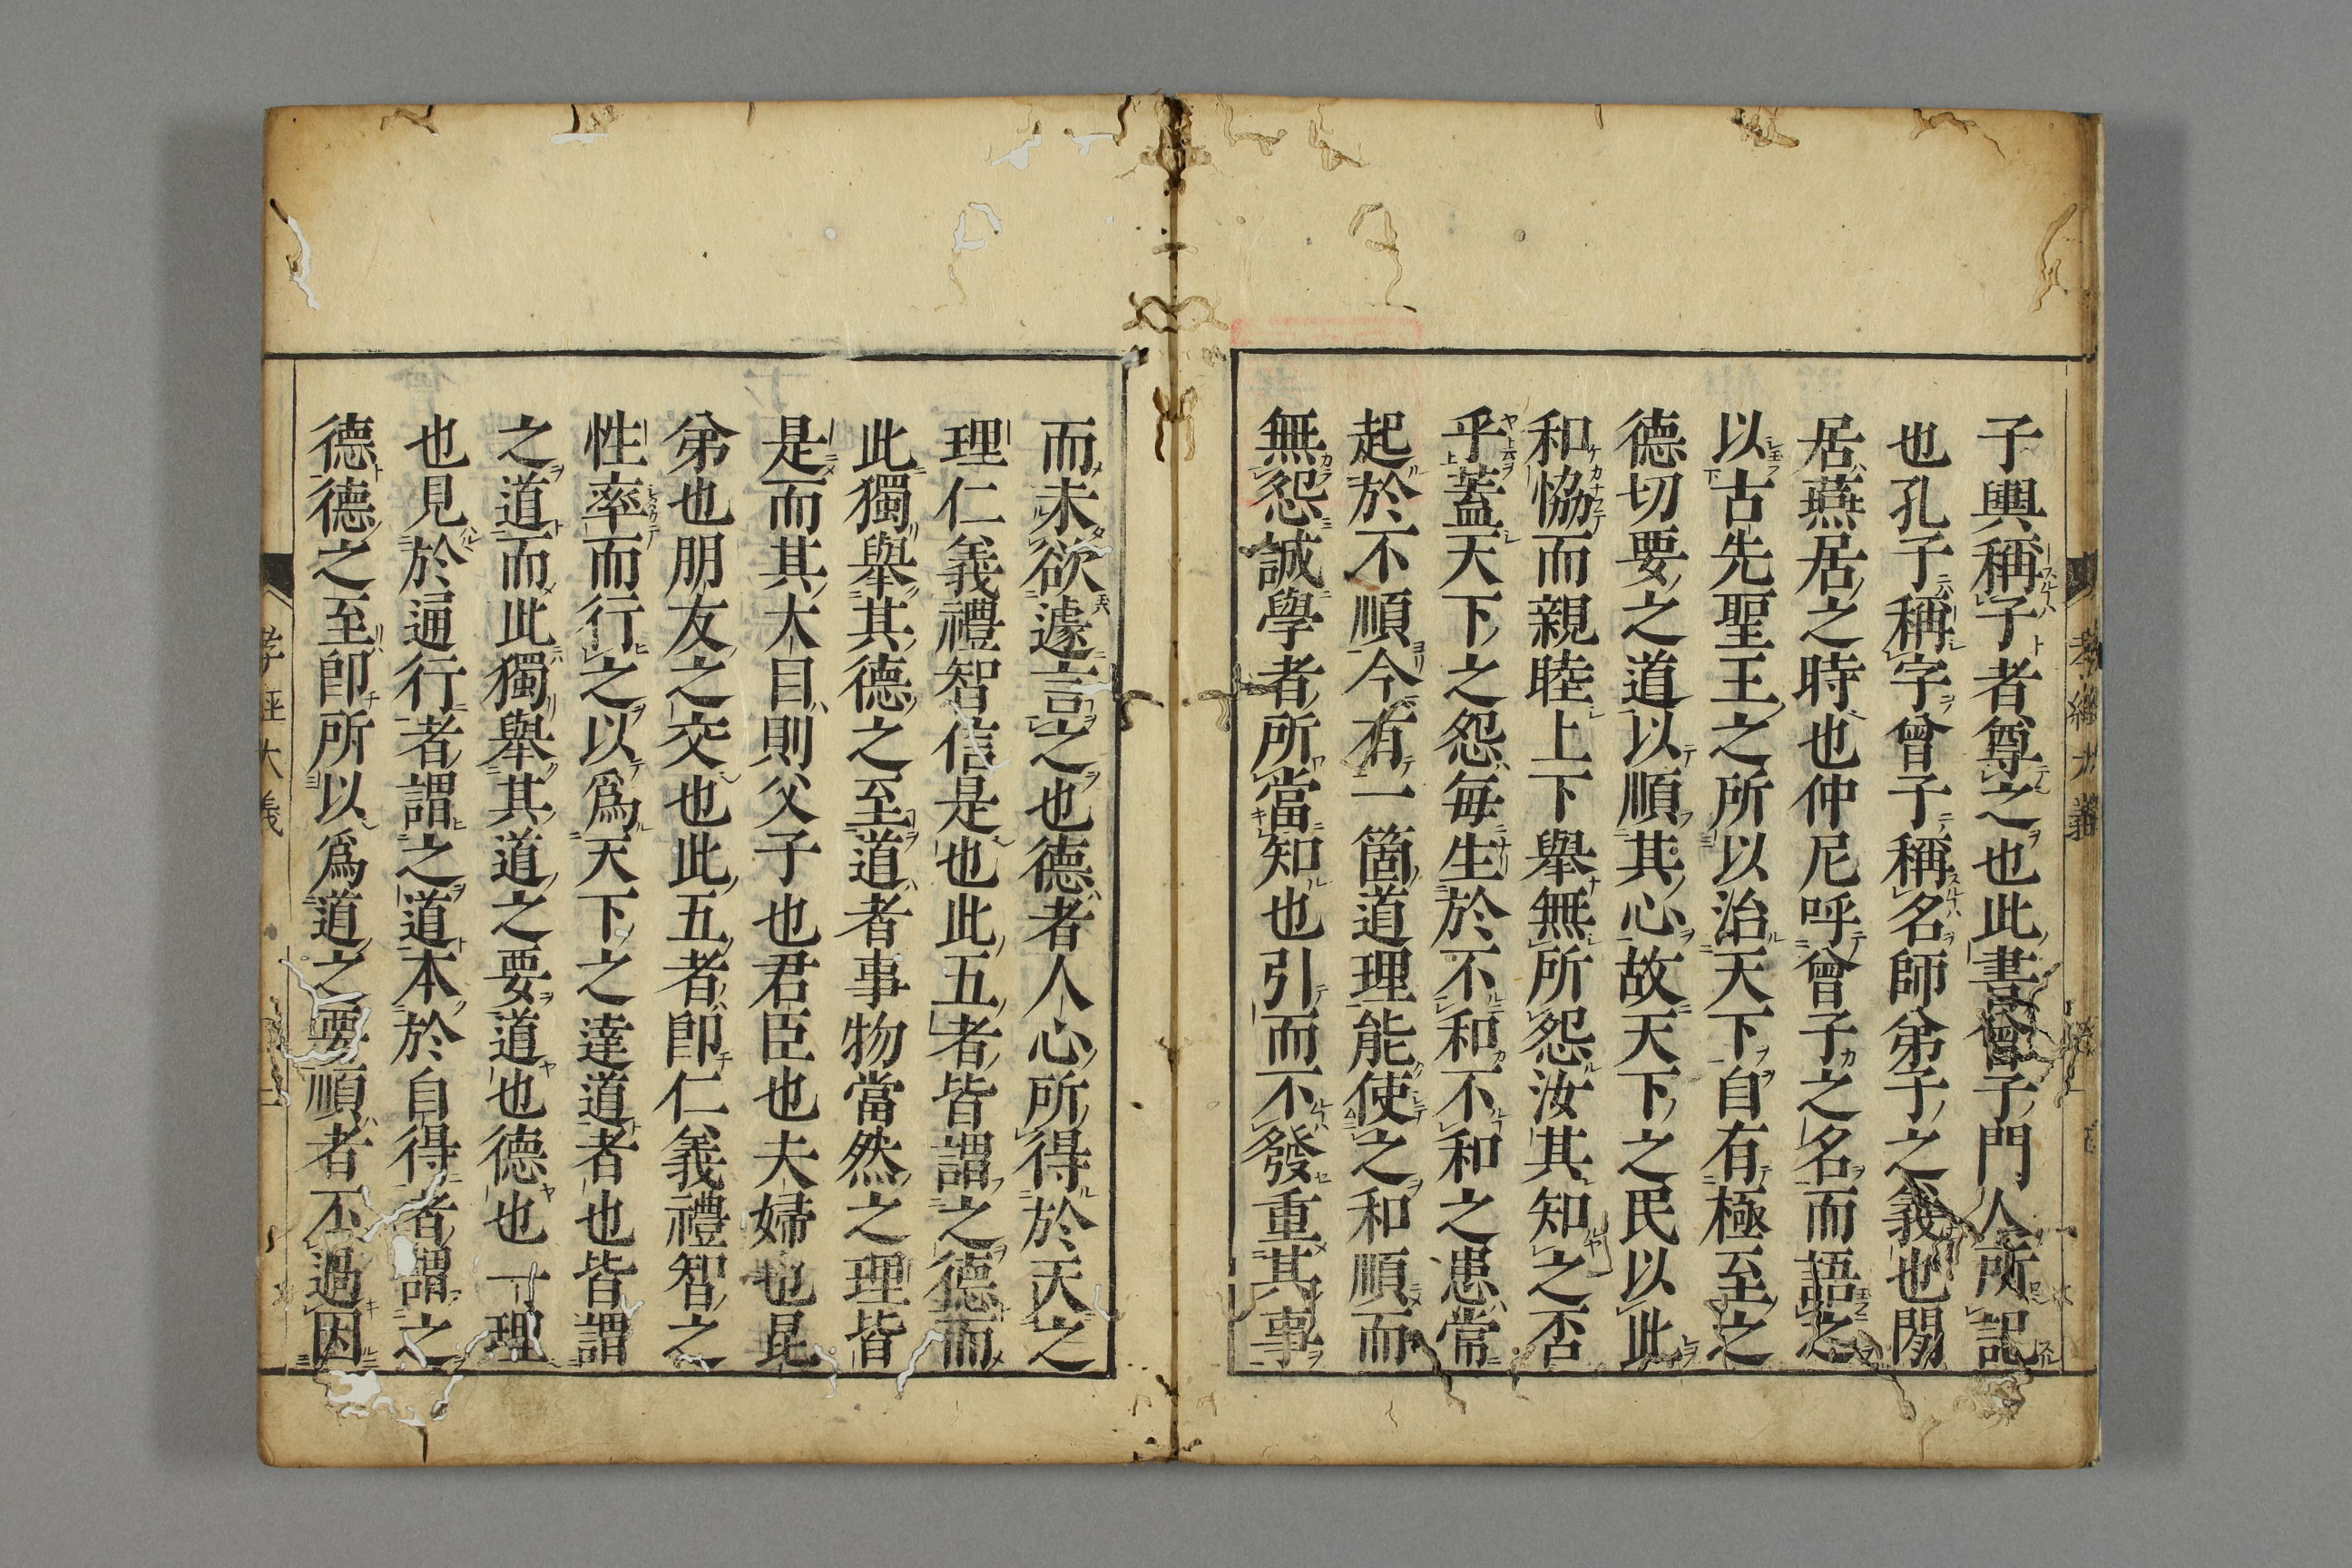 子輿稱子者尊之也此書曾子門人所記
也孔子稱字曾子稱名師弟子之義也閒
居燕居之時也仲尼呼曾子之名而語之
以古先聖王之所以治天下自有極至之
德切要之道以順其心故天下之民以此
和恊而親睦上下舉無所怨汝其知之否
乎蓋天下之怨每生於不和不和之患常
起於不順今有一箇道理能使之和順而
無怨誠學者所當知也引而不發重其事
而未欲遽言之也德者人心所得於天之
理仁義禮智信是也此五者皆謂之德而
此獨舉其德之至道者事物當然之理皆
是而其大目則父子也君臣也夫婦也昆
弟也朋友之交也此五者即仁義禮智之
性率而行之以爲天下之達道者也皆謂
之道而此獨舉其道之要道也德也一理
也見於通行者謂之道本於自得者謂之
德德之至即所以爲道之要順者不過因
孝經大義